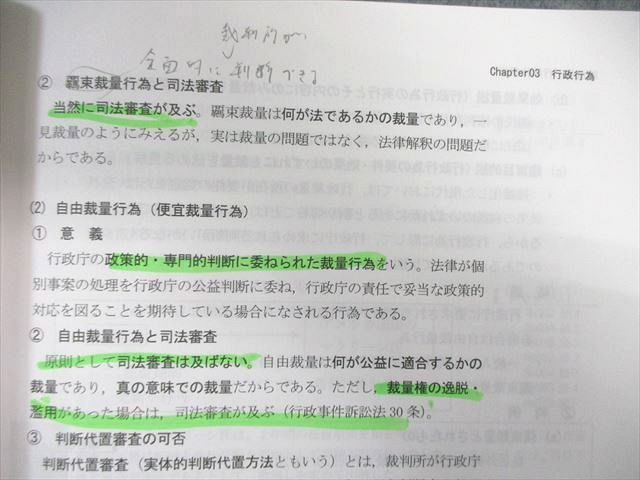 裁判所が
全面的に判断できる
Chapter03 行政行為
② 羈束裁量行為と司法審査
当然に司法審査が及ぶ。羈束裁量は何が法であるかの裁量であり，一
見裁量のようにみえるが，実は裁量の問題ではなく，法律解釈の問題だ
からである。
(2) 自由裁量行為（便宜裁量行為）
① 意 義
行政庁の政策的・専門的判断に委ねられた裁量行為をいう。法律が個
別事案の処理を行政庁の公益判断に委ね，行政庁の責任で妥当な政策的
対応を図ることを期待している場合になされる行為である。
② 自由裁量行為と司法審査
原則として司法審査は及ばない。自由裁量は何が公益に適合するかの
裁量であり，真の意味での裁量だからである。ただし，裁量権の逸脱・
濫用があった場合は，司法審査が及ぶ（行政事件訴訟法30条）。
③ 判断代置審査の可否
判断代置審査（実体的判断代置方法ともいう）とは，裁判所が行政庁